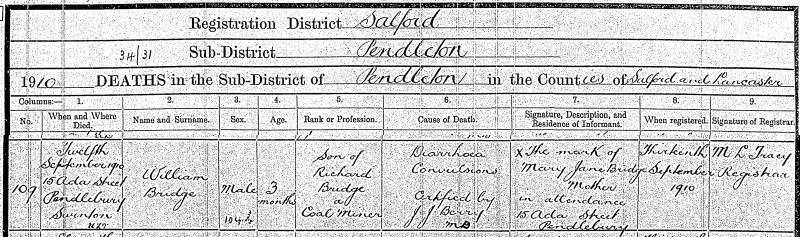 Registration District Salford
34/31 Sub-District Pendleton
1910. DEATHS in the Sub-District of Pendleton in the Counties of Salford and Lancaster
Columns:— 1. 2. 3. 4. 5. 6. 7. 8. 9.
No. When and Where Died. Name and Surname. Sex. Age. Rank or Profession. Cause of Death. Signature, Description, and Residence of Informant. When registered. Signature of Registrar.
109
Twelfth
September 1910
15 Ada Street
Pendlebury
Swinton
William
Bridge
Male
3
months
Son of
Richard
Bridge
a
Coal Miner
Diarrhoea
Convulsions
Certified by
J. J. Berry
MB
X The mark of
Mary Jane Bridge
Mother
in attendance
15 Ada Street
Pendlebury
Thirteenth
September
1910
M L Tracy
Registrar